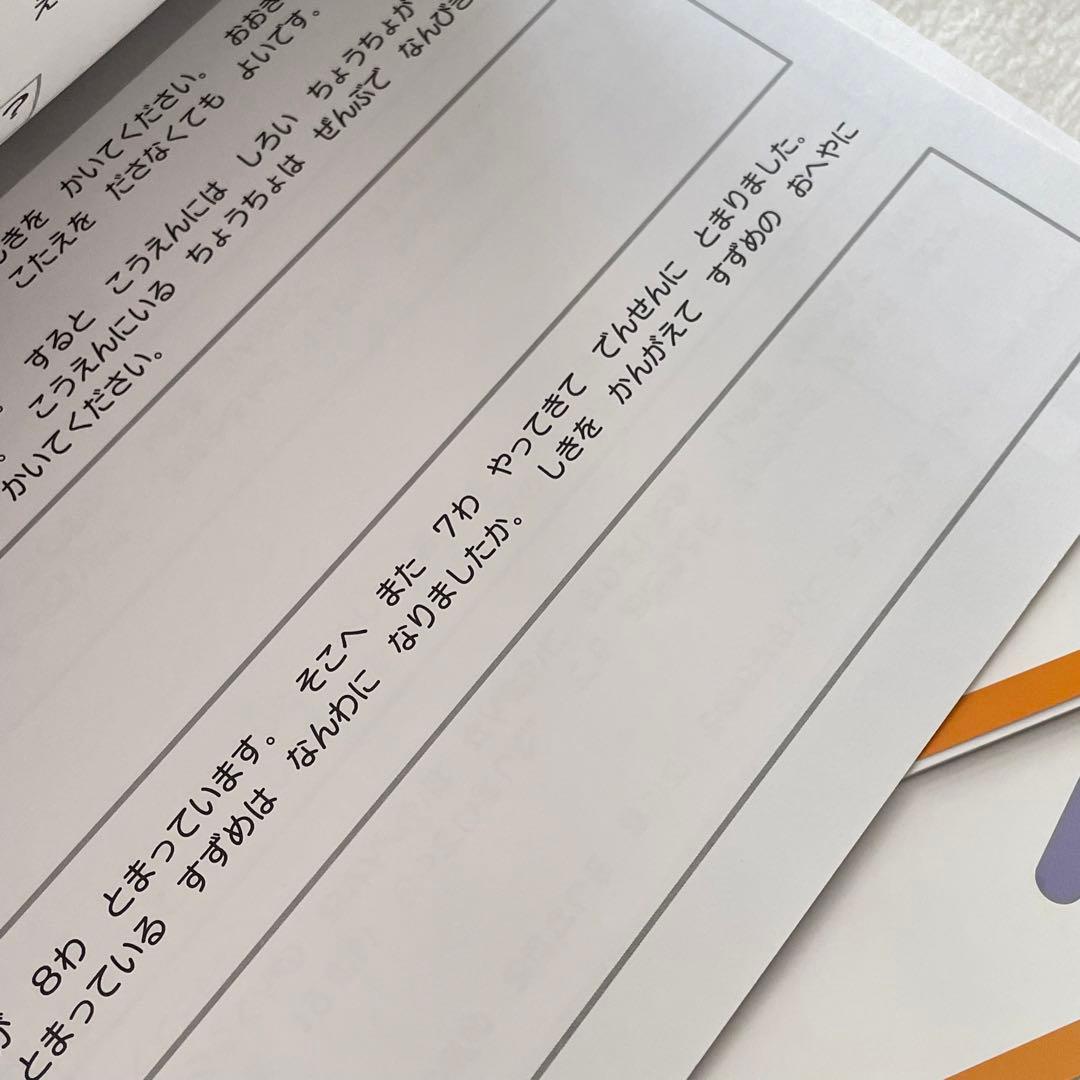 え
?
かいてください。 おおき
しきを
こたえを ださなくても よいです。
すると こうえんには しろい ちょうちょが
こうえんにいる ちょうちょは ぜんぶで なんびき
かいてください。
が 8わ とまっています。 そこへ また 7わ やってきて でんせんに とまりました。
とまっている すずめは なんわに なりましたか。 しきを かんがえて すずめの おへやに